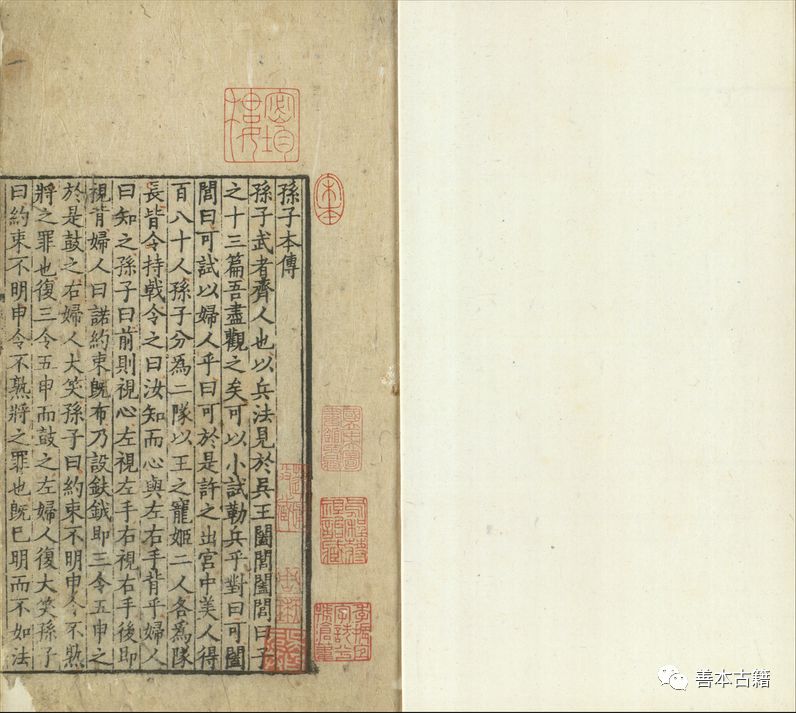 宋本
孫子本傳
孫子武者齊人也以兵法見於吳王闔閭闔閭曰子
之十三篇吾盡觀之矣可以小試勒兵乎對曰可闔
閭曰可試以婦人乎曰可於是許之出宮中美人得
百八十人孫子分爲二隊以王之寵姬二人各爲隊
長皆令持戟令之曰汝知而心與左右手背乎婦人
曰知之孫子曰前則視心左視左手右視右手後即
視背婦人曰諾約束既布乃設鈇鉞即三令五申之
於是鼓之右婦人大笑孫子曰約束不明申令不熟
將之罪也復三令五申而鼓之左婦人復大笑孫子
曰約束不明申令不熟將之罪也既已明而不如法
善本古籍